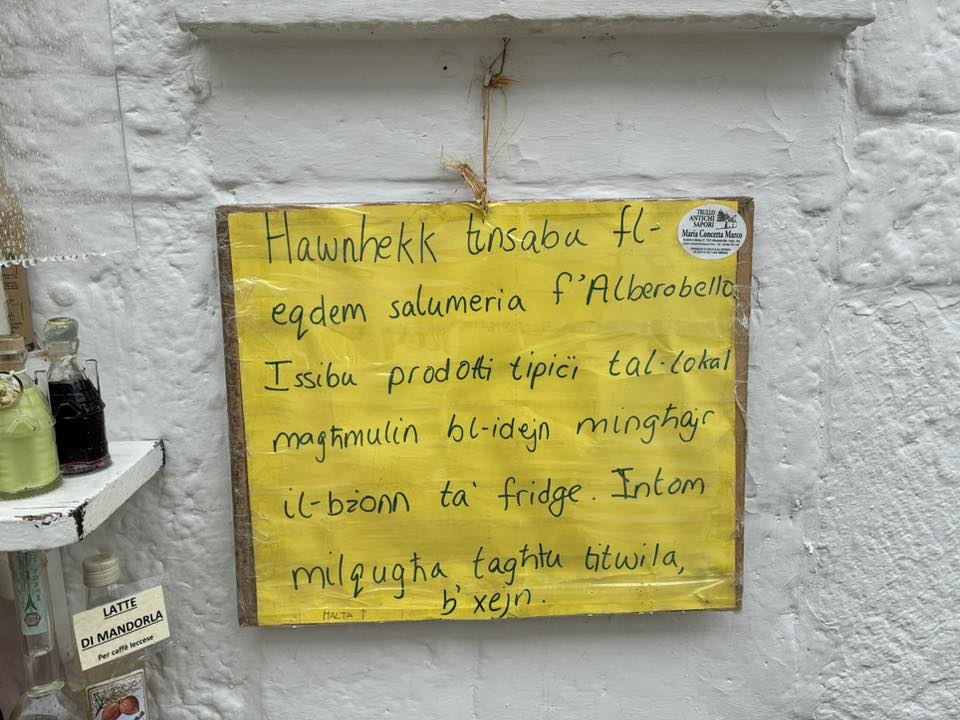 Hawnhekk tinsabu fl-
eqdem salumeria f'Alberobello
Issibu prodotti tipiċi tal-lokal
magħmulin bl-idejn mingħajr
il-bżonn ta' fridge. Intom
milqugħa tagħtu titwila,
b'xejn.
MALTA ↑
TRULLO
ANTICHI
SAPORI
Maria Concetta Marco
LATTE
DI MANDORLA
Per caffè leccese